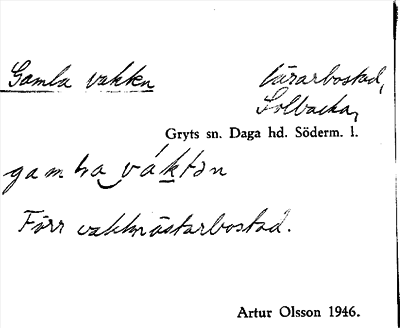 Gamla vakten lärarbostad,
Solbacka,
Gryts sn. Daga hd. Söderm. l.
gamla vák̲tən
Förr vaktmästarbostad.
Artur Olsson 1946.